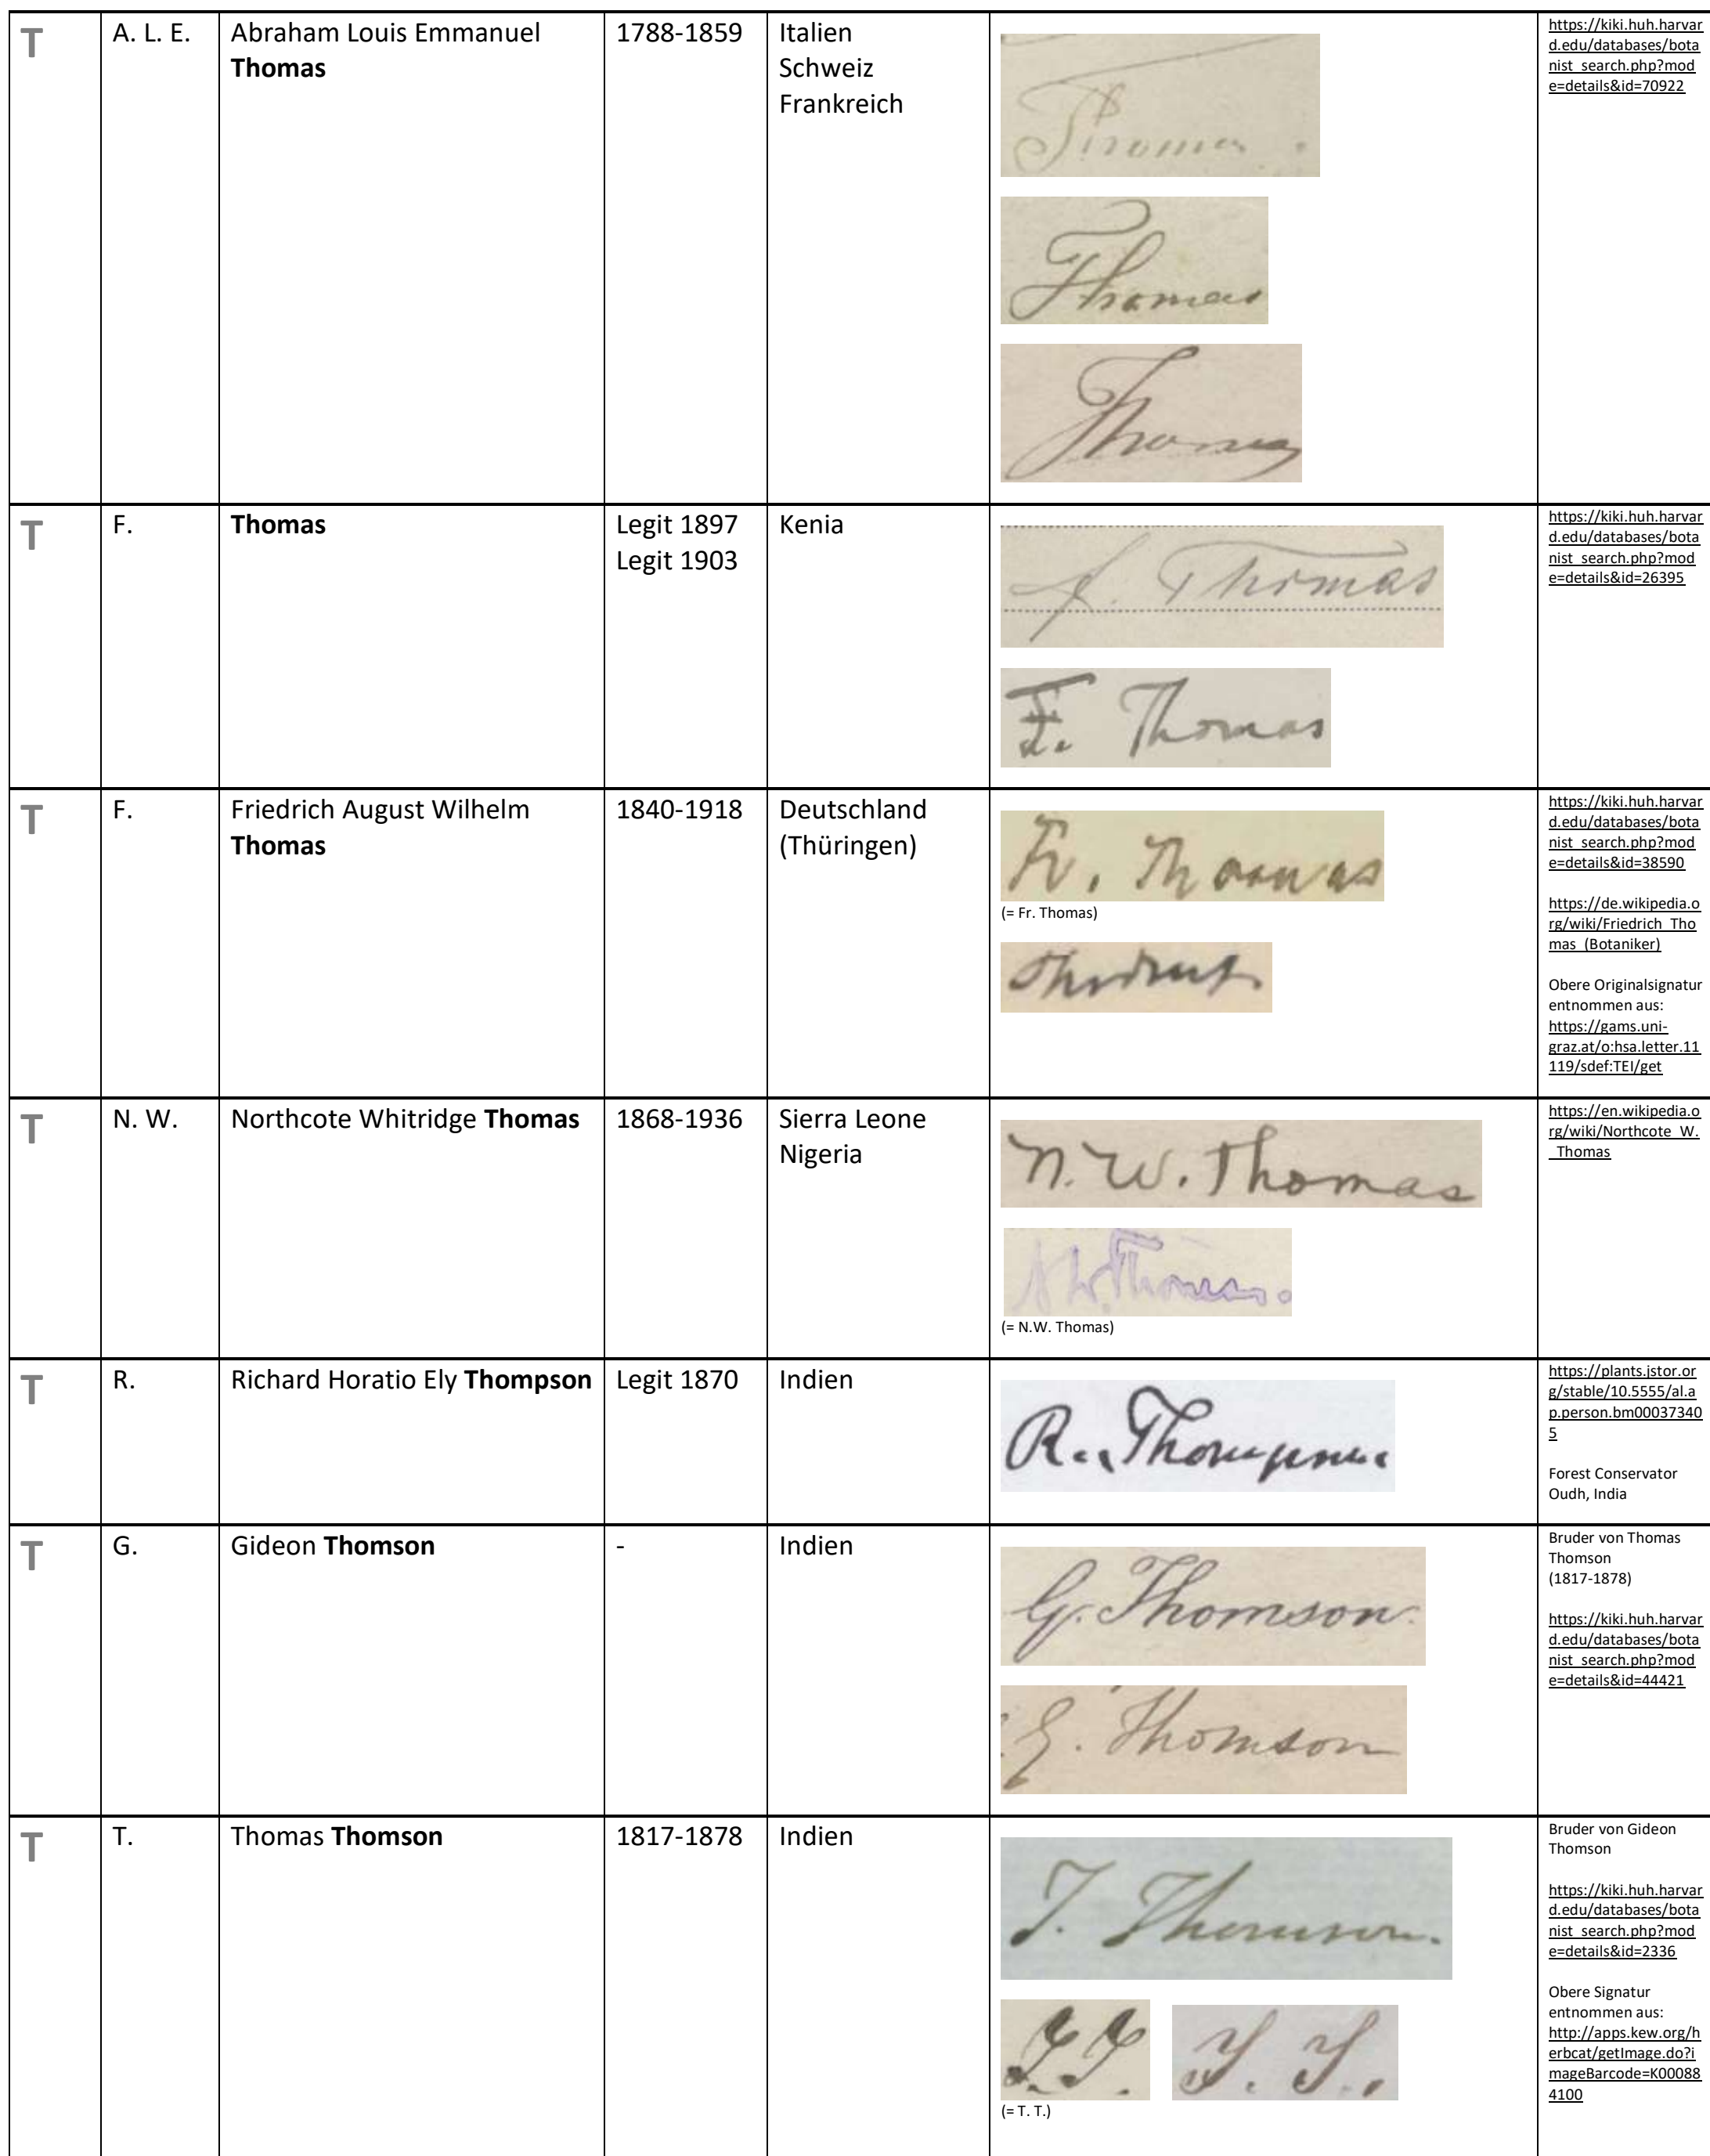 T
A. L. E.
Abraham Louis Emmanuel
Thomas
1788-1859
Italien
Schweiz
Frankreich
Thomas
Thomas
Thomas
https://kiki.huh.harvar
d.edu/databases/bota
nist_search.php?mod
e=details&id=70922
T
F.
Thomas
Legit 1897
Legit 1903
Kenia
F. Thomas
F. Thomas
https://kiki.huh.harvar
d.edu/databases/bota
nist_search.php?mod
e=details&id=26395
T
F.
Friedrich August Wilhelm
Thomas
1840-1918
Deutschland
(Thüringen)
Fr. Thomas
(= Fr. Thomas)
https://kiki.huh.harvar
d.edu/databases/bota
nist_search.php?mod
e=details&id=38590
https://de.wikipedia.o
rg/wiki/Friedrich_Tho
mas_(Botaniker)
Obere Originalsignatur
entnommen aus:
https://gams.uni-
graz.at/o:hsa.letter.11
119/sdef:TEI/get
T
N. W.
Northcote Whitridge Thomas
1868-1936
Sierra Leone
Nigeria
N. W. Thomas
N.W. Thomas.
(= N.W. Thomas)
https://en.wikipedia.o
rg/wiki/Northcote_W.
_Thomas
T
R.
Richard Horatio Ely Thompson
Legit 1870
Indien
R. Thompson
https://plants.jstor.or
g/stable/10.5555/al.a
p.person.bm00037340
5
Forest Conservator
Oudh, India
T
G.
Gideon Thomson
-
Indien
G. Thomson.
G. Thomson
Bruder von Thomas
Thomson
(1817-1878)
https://kiki.huh.harvar
d.edu/databases/bota
nist_search.php?mod
e=details&id=44421
T
T.
Thomas Thomson
1817-1878
Indien
T. Thomson.
T.T.
T. T.
(= T. T.)
Bruder von Gideon
Thomson
https://kiki.huh.harvar
d.edu/databases/bota
nist_search.php?mod
e=details&id=2336
Obere Signatur
entnommen aus:
http://apps.kew.org/h
erbcat/getImage.do?i
mageBarcode=K00088
4100